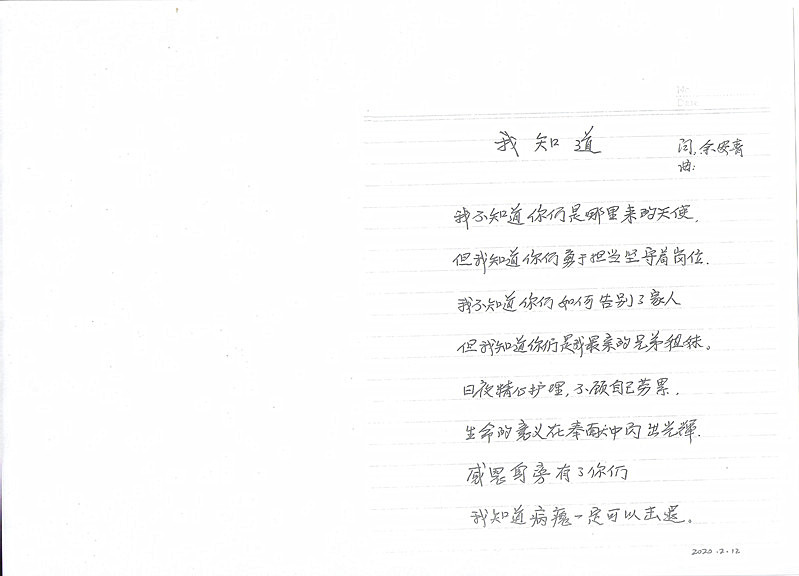 No:
Date
我知道
词:余安青
曲:
我不知道你们是哪里来的天使.
但我知道你们勇于担当坚守着岗位.
我不知道你们如何告别了家人
但我知道你们是我最亲的兄弟姐妹。
日夜精心护理,不顾自己劳累.
生命的意义在奉献中闪出光辉.
感恩身旁有了你们
我知道病魔一定可以击退。
2020.2.12